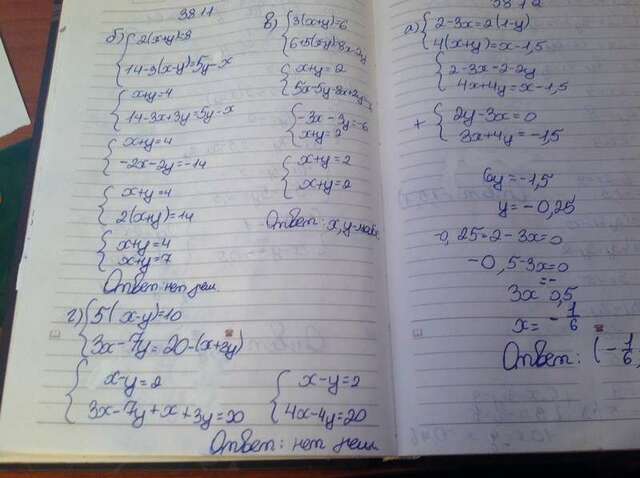 38.11
б) { 2(x+y)=8
14-3(x-y)=5y-x
{ x+y=4
14-3x+3y=5y-x
{ x+y=4
-2x-2y=-14
{ x+y=4
2(x+y)=14
{ x+y=4
x+y=7
Ответ: нет реш
в) { 3(x+y)=6
6+5(x-y)=8x-2y
{ x+y=2
5x-5y-8x+2y=-6
{ -3x-3y=-6
x+y=2
{ x+y=2
x+y=2
Ответ: x, y-
г) { 5(x-y)=10
3x-7y=20-(x+3y)
{ x-y=2
3x-7y+x+3y=20
{ x-y=2
4x-4y=20
Ответ: нет реш
38.12
а) { 2-3x=2(1-y)
4(x+y)=x-1,5
{ 2-3x=2-2y
4x+4y=x-1,5
+ { 2y-3x=0
3x+4y=-1,5
6y=-1,5
y=-0,25
-0,25·2-3x=0
-0,5-3x=0
3x=-0,5
x=-1/6
Ответ: (-1/6,